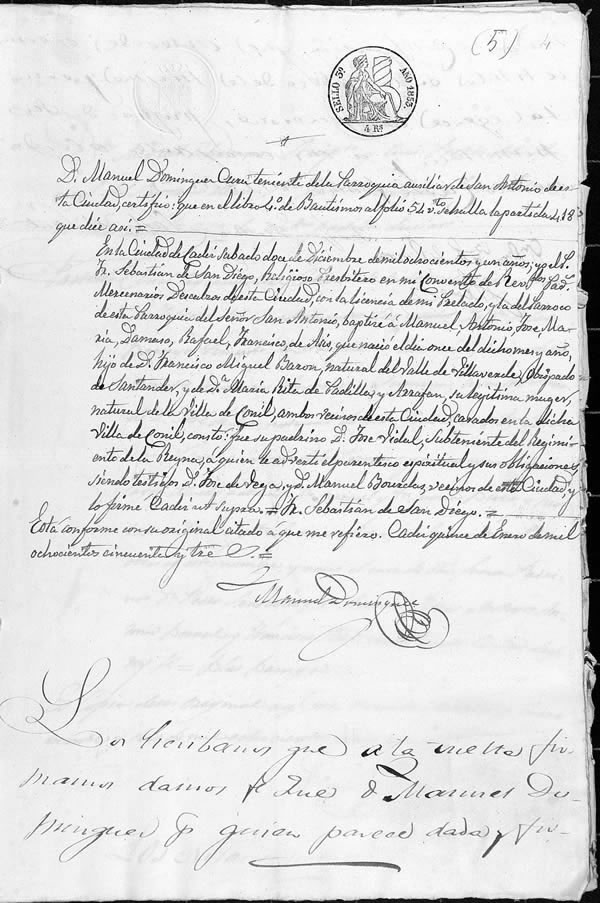 (5) 4
SELLO 3º AÑO 1853
4 Rs.
D. Manuel Dominguez Cura teniente de la Parroquia auxiliar de San Antonio de es-
ta Ciudad, certifico: que en el libro 4º de Bautismos al folio 54 vto se halla la partida 418
que dice asi. =
En la Ciudad de Cadiz sabado doce de Diciembre de mil ochocientos y un años; yo el P.
Fr. Sebastian de San Diego, Religioso Presbitero en mi Convento de Revdos. Pads.
Mercenarios Descalzos de esta Ciudad, con la licencia de mi Prelado, y la del Parroco
de esta Parroquia del Señor San Antonio, baptizé á Manuel, Antonio, Jose, Ma-
ria, Damaso, Rafael, Francisco, de Asis, que nacio el dia once del dicho mes y año,
hijo de D. Francisco Miguel Baron, natural del Valle de Villaverde, Obispado
de Santander, y de Da. Maria Rita de Padilla, y Arrafan, su legitima muger,
natural de la Villa de Conil, ambos vecinos de esta Ciudad, casados en la dicha
Villa de Conil, constó: fue su padrino D. Jose Vidal, Subteniente del Regimi-
ento de la Reyna, á quien le advertí el parentesco espiritual y sus obligaciones,
siendo testigos D. Jose de Vega, y D. Manuel Bourelaz, vecinos de esta Ciudad, y
lo firmé Cadiz ut supra. = Fr. Sebastian de San Diego. =
Está conforme con su original citado á que me refiero. Cadiz quince de Enero de mil
ochocientos cincuenta y tres. =
Manuel Dominguez
Los Escribanos que a la vuelta fir-
mamos damos fe que D. Manuel Do-
minguez por quien parece dada y fir-